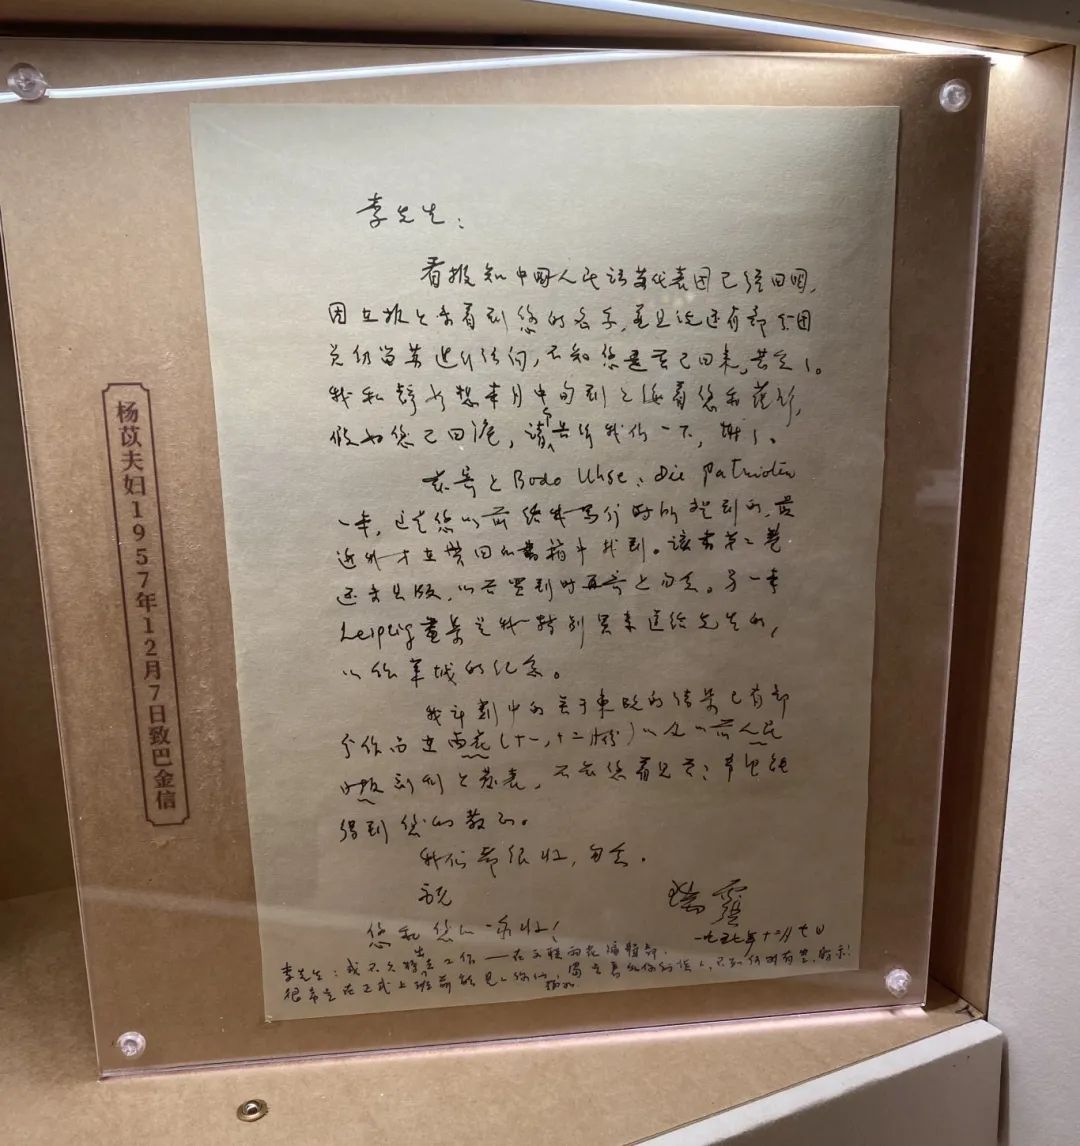 杨苡夫妇1957年12月7日致巴金信
李先生：
看报知中国人民访苏代表团已经回国，
因在报上未看到您的名字，并且说还有部分团
员仍留苏进行访问，不知您是否已回来。苦念了。
我和静如想本月中旬到上海看您和蕴珍，
假如您已回沪，请告诉我们一下，谢了。
寄上 Bodo Uhse: Die Patrioten
一本，这是您以前给我写信时所提到的，最
近外才在带回的书箱中找到。该书第二卷
还未出版，以后买到时再寄上勿念。另一本
Leipzig画集是我特别买来送给先生的，
以作莱城的纪念。
我计划中的关于东欧的诗集已有部
分作品在雨花（十一，十二月份）以及以前人民
日报副刊上发表，不知您看见否？希望能
得到您的教正。
我们都很好，勿念。
祝
您和您的一家好！
瑞蕻
一九五七年十二月七日
李先生：我不久将去工作——在文联雨花编辑部，
很希望在正式上班前能见见你们，